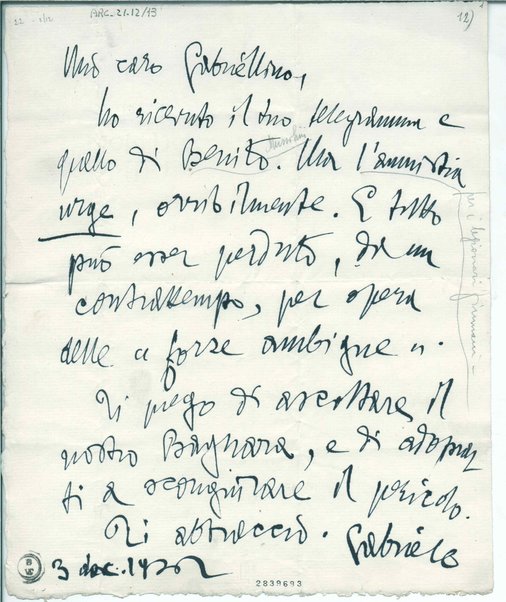 22 - 1/12
ARC_21.12/43
12)
Mio caro Gabriellino,
ho ricevuto il tuo telegramma e
quello di Benito. Ma l'amnistia
Mussolini
urge, orribilmente. E tutto
può esser perduto, da un
contrattempo, per opera
delle « forze ambigue ».
Ti prego di ascoltare il
nostro Bagnara, e di adoprar
ti a scongiurare il pericolo.
Ti abbraccio. Gabriele
3 dec. 1922
per i legionari fiumani
2839693